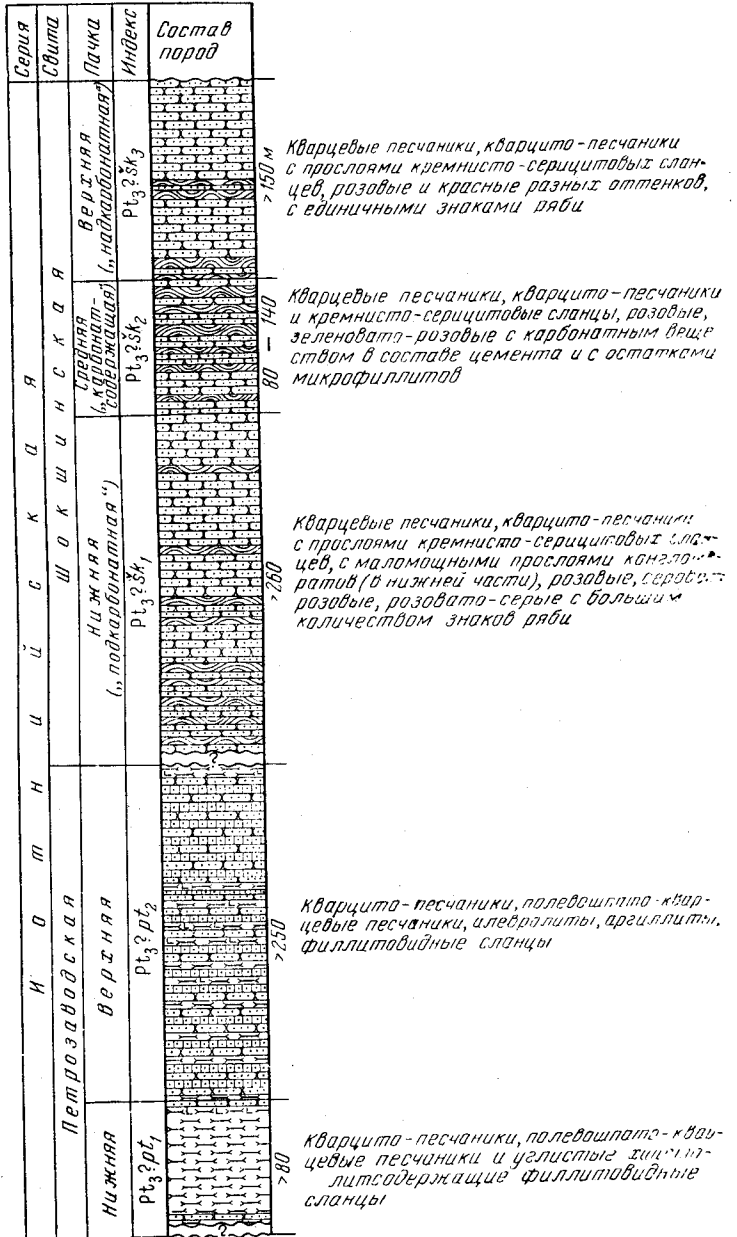 Серия
Свита
Пачка
Индекс
Состав
пород
Иотнийская
Шокшинская
Верхняя
(„надкарбонатная“)
Pt₃?šk₃
>150 м
Кварцевые песчаники, кварцито-песчаники
с прослоями кремнисто-серицитовых слан-
цев, розовые и красные разных оттенков,
с единичными знаками ряби
Средняя
(„карбонат-
содержащая“)
Pt₃?šk₂
80 — 140
Кварцевые песчаники, кварцито-песчаники
и кремнисто-серицитовые сланцы, розовые,
зеленовато-розовые с карбонатным веще
ством в составе цемента и с остатками
микрофиллитов
Нижняя
(„подкарбонатная“)
Pt₃?šk₁
>260
Кварцевые песчаники, кварцито-песчаники
с прослоями кремнисто-серицитовых слан-
цев, с маломощными прослоями конгломе-
ратов (в нижней части), розовые, серова-
розовые, розовато-серые с большим
количеством знаков ряби
?
Петрозаводская
Верхняя
Pt₃?pt₂
>250
Кварцито-песчаники, полевошпато-квар-
цевые песчаники, алевролиты, аргиллиты,
филлитовидные сланцы
Нижняя
Pt₃?pt₁
>80
Кварцито-песчаники, полевошпато-квар-
цевые песчаники и углистые
литсодержащие филлитовидные
сланцы
?